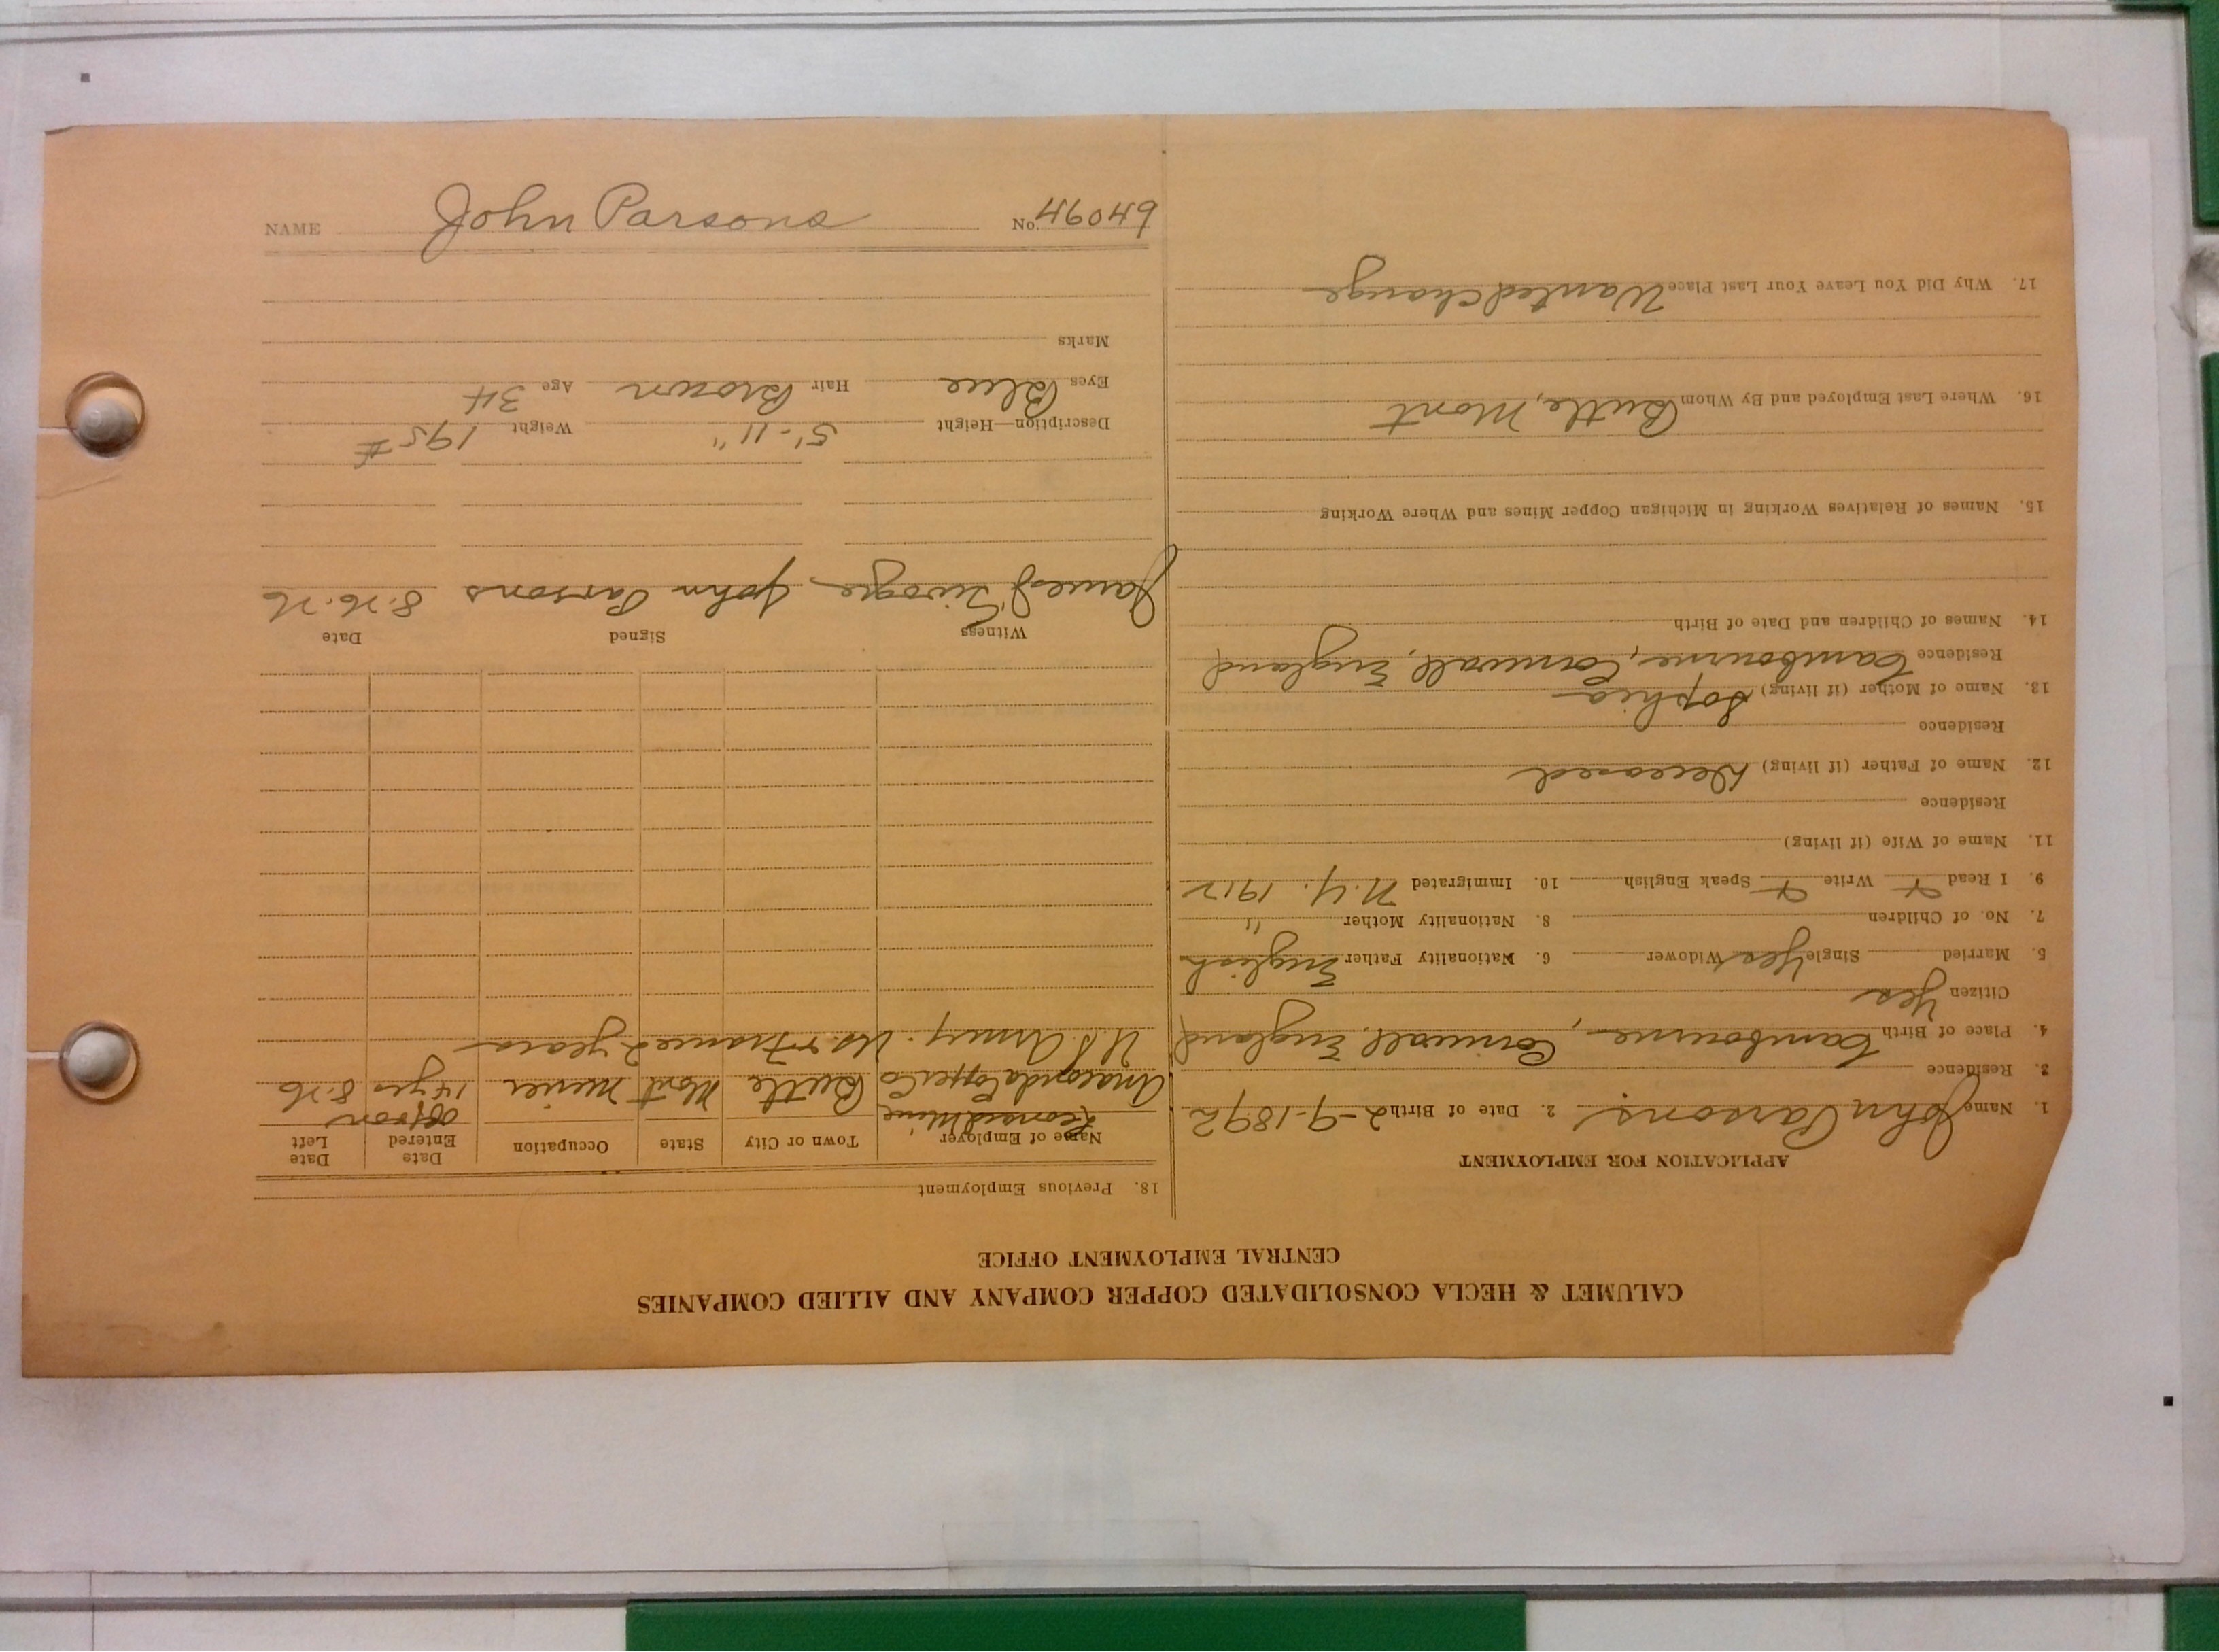 CALUMET & HECLA CONSOLIDATED COPPER COMPANY AND ALLIED COMPANIES
CENTRAL EMPLOYMENT OFFICE
APPLICATION FOR EMPLOYMENT
1. Name John Parsons. 2. Date of Birth 2-9-1892
3. Residence
4. Place of Birth Cambourne, Cornwall, England
Citizen Yes
5. Married Single Yes Widower 6. Nationality Father English
7. No. of Children 8. Nationality Mother "
9. I Read Write Speak English 10. Immigrated N.Y. 1912
11. Name of Wife (if living)
Residence
12. Name of Father (if living) Deceased
Residence
13. Name of Mother (if living) Sophia
Residence Cambourne, Cornwall, England
14. Names of Children and Date of Birth
15. Names of Relatives Working in Michigan Copper Mines and Where Working
16. Where Last Employed and By Whom Butte, Mont
17. Why Did You Leave Your Last Place Wanted change
18. Previous Employment
Name of Employer Town or City State Occupation Date Entered Date Left
Leonard Mine off & on
Anaconda Copper Co Butte Mont miner 14 yrs 8-26
U.S. Army. U.S. & France 2 years
Witness Signed Date
James J John Parsons 8-26-26
Description—Height 5'-11" Weight 195#
Eyes Blue Hair Brown Age 34
Marks
NAME John Parsons No. 46049